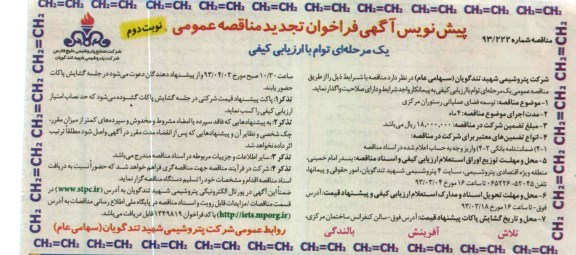 CH₂=CH₂ CH₂=CH₂ CH₂=CH₂ CH₂=CH₂ CH₂=CH₂ CH₂=CH₂ CH₂=CH₂
مناقصه شماره ۹۳/۲۲۲
پیش نویس آگهی فراخوان تجدید مناقصه عمومی
نوبت دوم
یک مرحله‌ای توام با ارزیابی کیفی
شرکت صنایع پتروشیمی خلیج فارس
شرکت پتروشیمی شهید تندگویان
شرکت پتروشیمی شهید تندگویان (سهامی عام)، در نظر دارد مناقصه با شرایط ذیل را از طریق
مناقصه عمومی یک مرحله‌ای توام با ارزیابی کیفی به پیمانکار واجد شرایط و دارای صلاحیت واگذار نماید.
۱- موضوع مناقصه: توسعه فضای عملیاتی رستوران مرکزی
۲- مدت اجرای موضوع مناقصه: ۴ ماه
۳- مبلغ تضمین شرکت در مناقصه: ۱۸۰,۰۰۰,۰۰۰ ریال می‌باشد.
۴- انواع تضمین‌های معتبر برای شرکت در مناقصه:
۴-۱) ضمانتنامه بانکی ۴-۲) واریز وجه به حساب اعلام شده در اسناد مناقصه
۵- محل و مهلت توزیع اوراق استعلام ارزیابی کیفی و اسناد مناقصه: بندر امام خمینی،
منطقه ویژه اقتصادی پتروشیمی، سایت ۴ پتروشیمی شهید تندگویان، امور حقوقی و پیمانها،
تلفن: ۰۶۵۲۲۶۵۲۰۴۵ تا ساعت ۱۶ مورخ ۹۳/۰۳/۰۴
۶- محل و مهلت تحویل اسناد و مدارک استعلام ارزیابی کیفی و پیشنهاد قیمت: آدرس
فوق- تا ساعت ۱۶ مورخ ۹۳/۰۳/۱۸
۷- محل و تاریخ گشایش پاکات پیشنهاد قیمت: آدرس فوق- سالن کنفرانس ساختمان مرکزی،
ساعت ۱۰/۳۰ صبح مورخ ۹۳/۰۴/۰۳ و از پیشنهاد دهندگان دعوت می‌شود در جلسه گشایش پاکات
حضور یابند.
تذکر۱: پاکت پیشنهاد قیمت شرکتی در جلسه گشایش پاکات گشوده می‌شود که حد نصاب امتیاز
ارزیابی کیفی را کسب نماید.
تذکر ۲: به پیشنهادهایی که فاقد سپرده یا امضاء مشروط و مخدوش و سپرده‌های کمتر از میزان مقرر،
چک شخصی و نظایر آن و پیشنهادهایی که پس از انقضاء مدت مقرر در آگهی واصل شود مطلقا ترتیب
اثر داده نخواهد شد.
تذکر ۳: سایر اطلاعات و جزییات مربوطه در اسناد مناقصه مندرج می‌باشد.
تذکر ۴: شرکت در فرآیند مناقصه جهت مناقصه‌گری فراهم خواهد شد که حضور آنسبت به دریافت
اسناد مناقصه اقدام و مشخصات خود را تسلیم دستگاه مناقصه گزار نماید.
ضمنا آگهی در پورتال الکترونیکی پتروشیمی شهید تندگویان به آدرس (www.stpc.ir) در
قسمت مناقصات / مزایدات قابل رویت و اسناد مناقصه در پایگاه ملی اطلاع رسانی مناقصات به آدرس
(http://iets.mporg.ir) با کد فراخوان ۱۳۴۹۸۱۹ قابل دریافت می‌باشد.
روابط عمومی شرکت پتروشیمی شهید تندگویان (سهامی عام)
تلاش آفرینش بالندگی
CH₂=CH₂ CH₂=CH₂ CH₂=CH₂ CH₂=CH₂ CH₂=CH₂ CH₂=CH₂ CH₂=CH₂